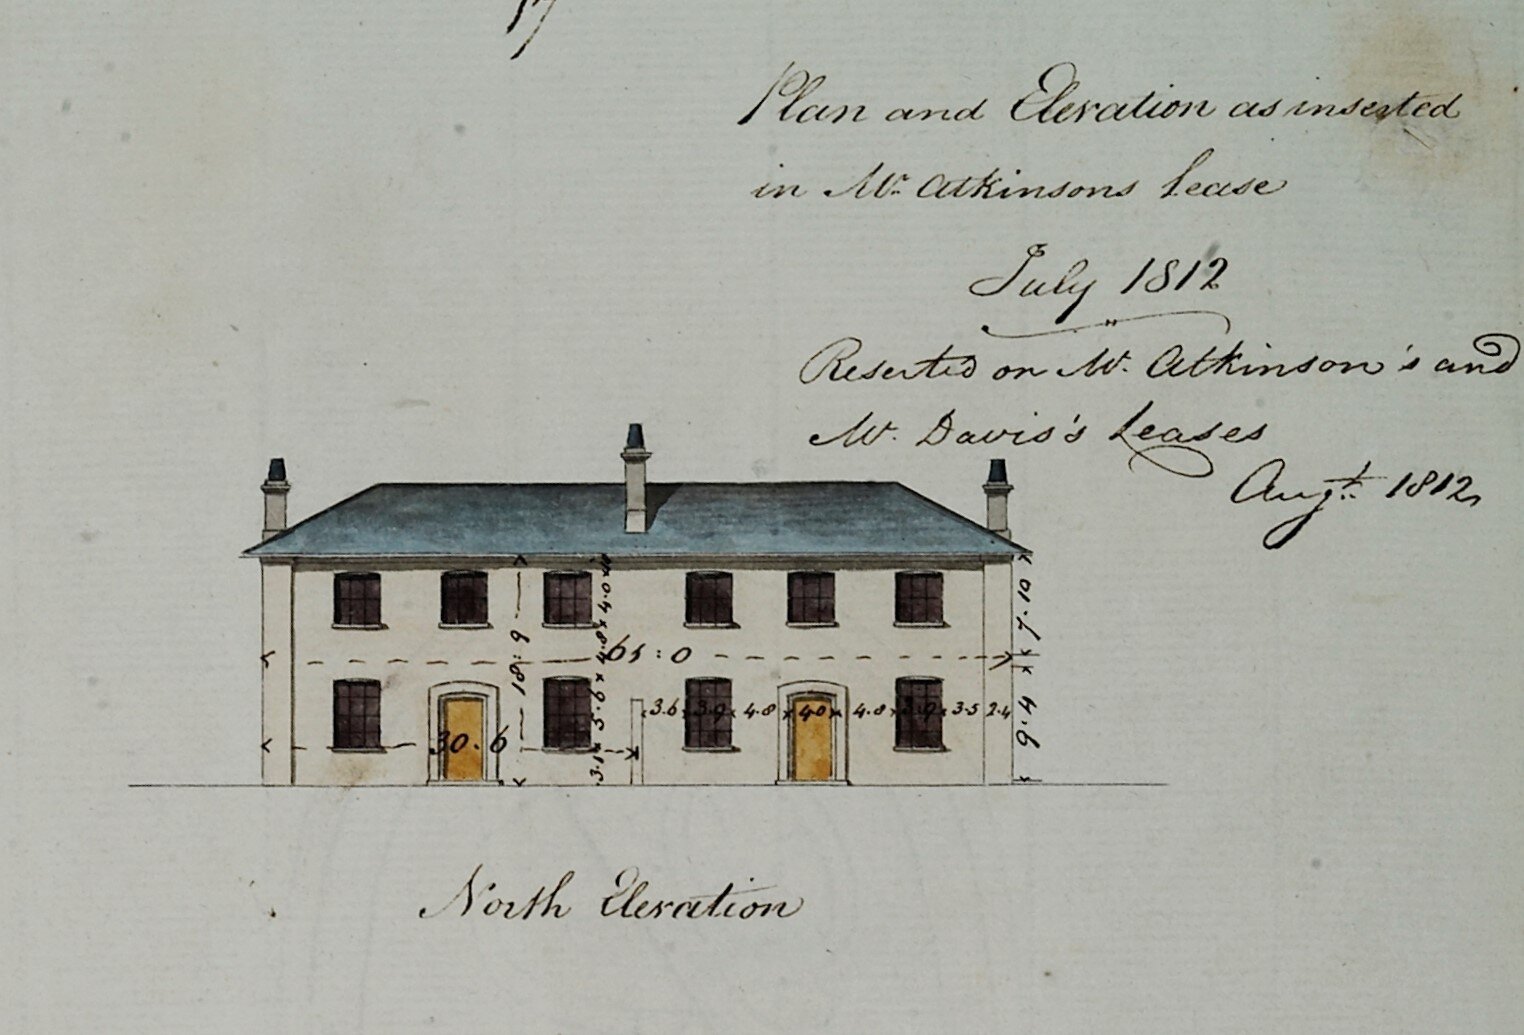 17
Plan and Elevation as inserted
in Mr. Atkinsons Lease
July 1812
Reserted on Mr. Atkinson's and
Mr. Davis's Leases
Augt. 1812
7.10
18:9
4.0
4.8
65:0
5.6
3.6 3.9 4.8 4.0 4.8 3.9 3.5 2.4
9.4
30.6
3.1
North Elevation